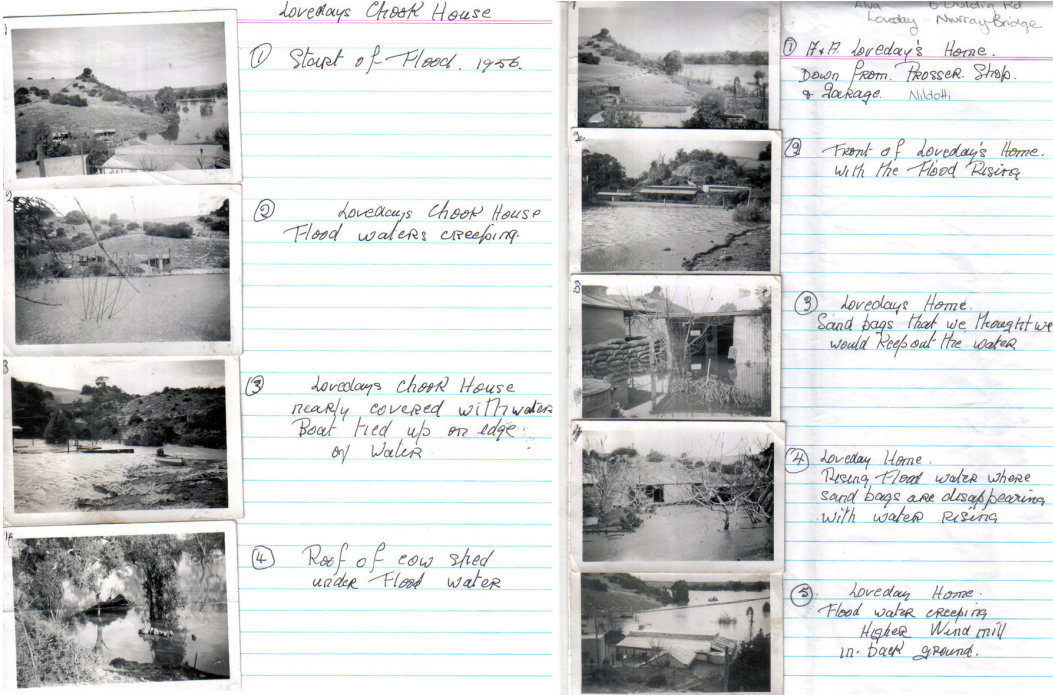 Lovedays Chook House
1
① Start of Flood. 1956.
2
② Lovedays Chook House
Flood waters creeping.
3
③ Lovedays Chook House
nearly covered with water
Boat tied up on edge
of Water.
④ Roof of cow shed
under Flood water
Alva 6 Duldig Rd
Loveday Murray Bridge
① A & A Loveday's Home.
Down from Prosser. Shop.
& Garage. Nildotti
② Front of Loveday's Home.
with the Flood Rising
③ Lovedays Home.
Sand bags that we thought we
would keep out the water
④ Loveday Home.
Rising Flood water where
sand bags are disappearing
with water rising
⑤ Loveday Home.
Flood water creeping
Higher Wind mill
in back ground.